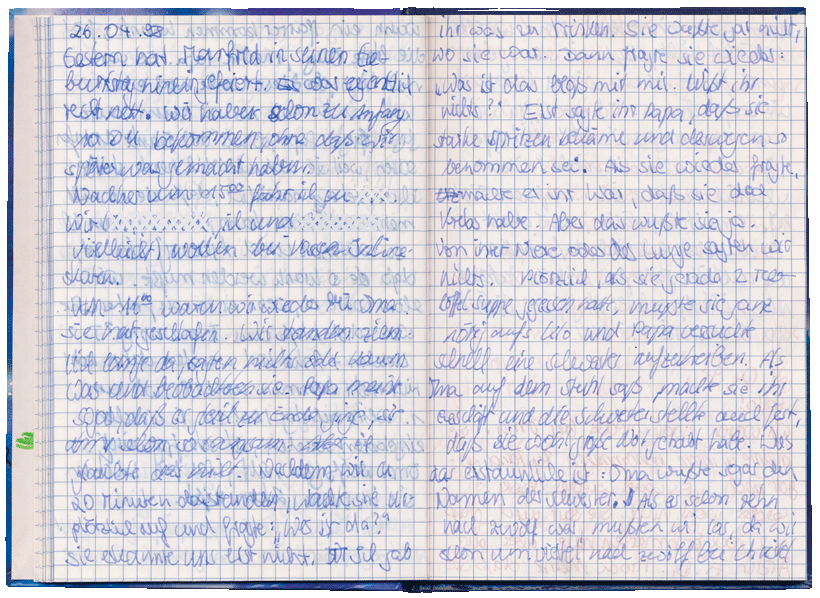 26.04.98
Gestern hat Manfred in seinen Ge-
burtstag hineingefeiert. Das eigentlich
recht nett. Wir haben schon zu Anfang
10 DM bekommen ohne daß wir
später was gemacht haben.
Nachher um 15⁰⁰ fahr ich zu
Wir ( , ich und
vielleicht) wollen bei Inline-
skaten.
Um 16⁰⁰ waren wir wieder bei Oma
sie hat geschlafen. Wir standen ziem-
lich lange da, saßen nicht
was und beobachteten sie. Papa meinte
sogar, daß es jetzt zu Ende ginge, sie
glaubte das nicht. Nachdem wir ca
20 Minuten dastanden, wachte sie
plötzlich auf und fragte: „Wer ist da?"
Sie erkannte uns erst nicht. Ich gab
ihr was zu trinken. Sie wußte gar nicht,
wo sie war. Dann fragte sie wieder:
„Was ist das bloß mit mir. Wißt ihr
nichts?" Erst sagte ihr Papa, daß sie
starke Spritzen bekäme und deswegen so
benommen sei. Als sie wieder fragte,
machte er ihr klar, daß sie doch
Krebs habe. Aber das wußte sie ja.
Von ihrer Niere oder der Lunge sagten wir
nichts. Plötzlich, als sie gerade 2 Tee-
löffel Suppe gegessen hatte, mußte sie ganz
nötig aufs Klo und Papa versuchte
schnell eine Schwester aufzutreiben. Als
Oma auf dem Stuhl saß, machte sie ihr
Geschäft und die Schwester stellte auch fest,
daß sie wohl große Not gehabt habe. Was
gar erstaunliche ist: Oma wußte sogar den
Namen der Schwester. Als es schon zehn
nach zwölf war, mußten wir los, da wir
schon um viertel nach zwölf bei